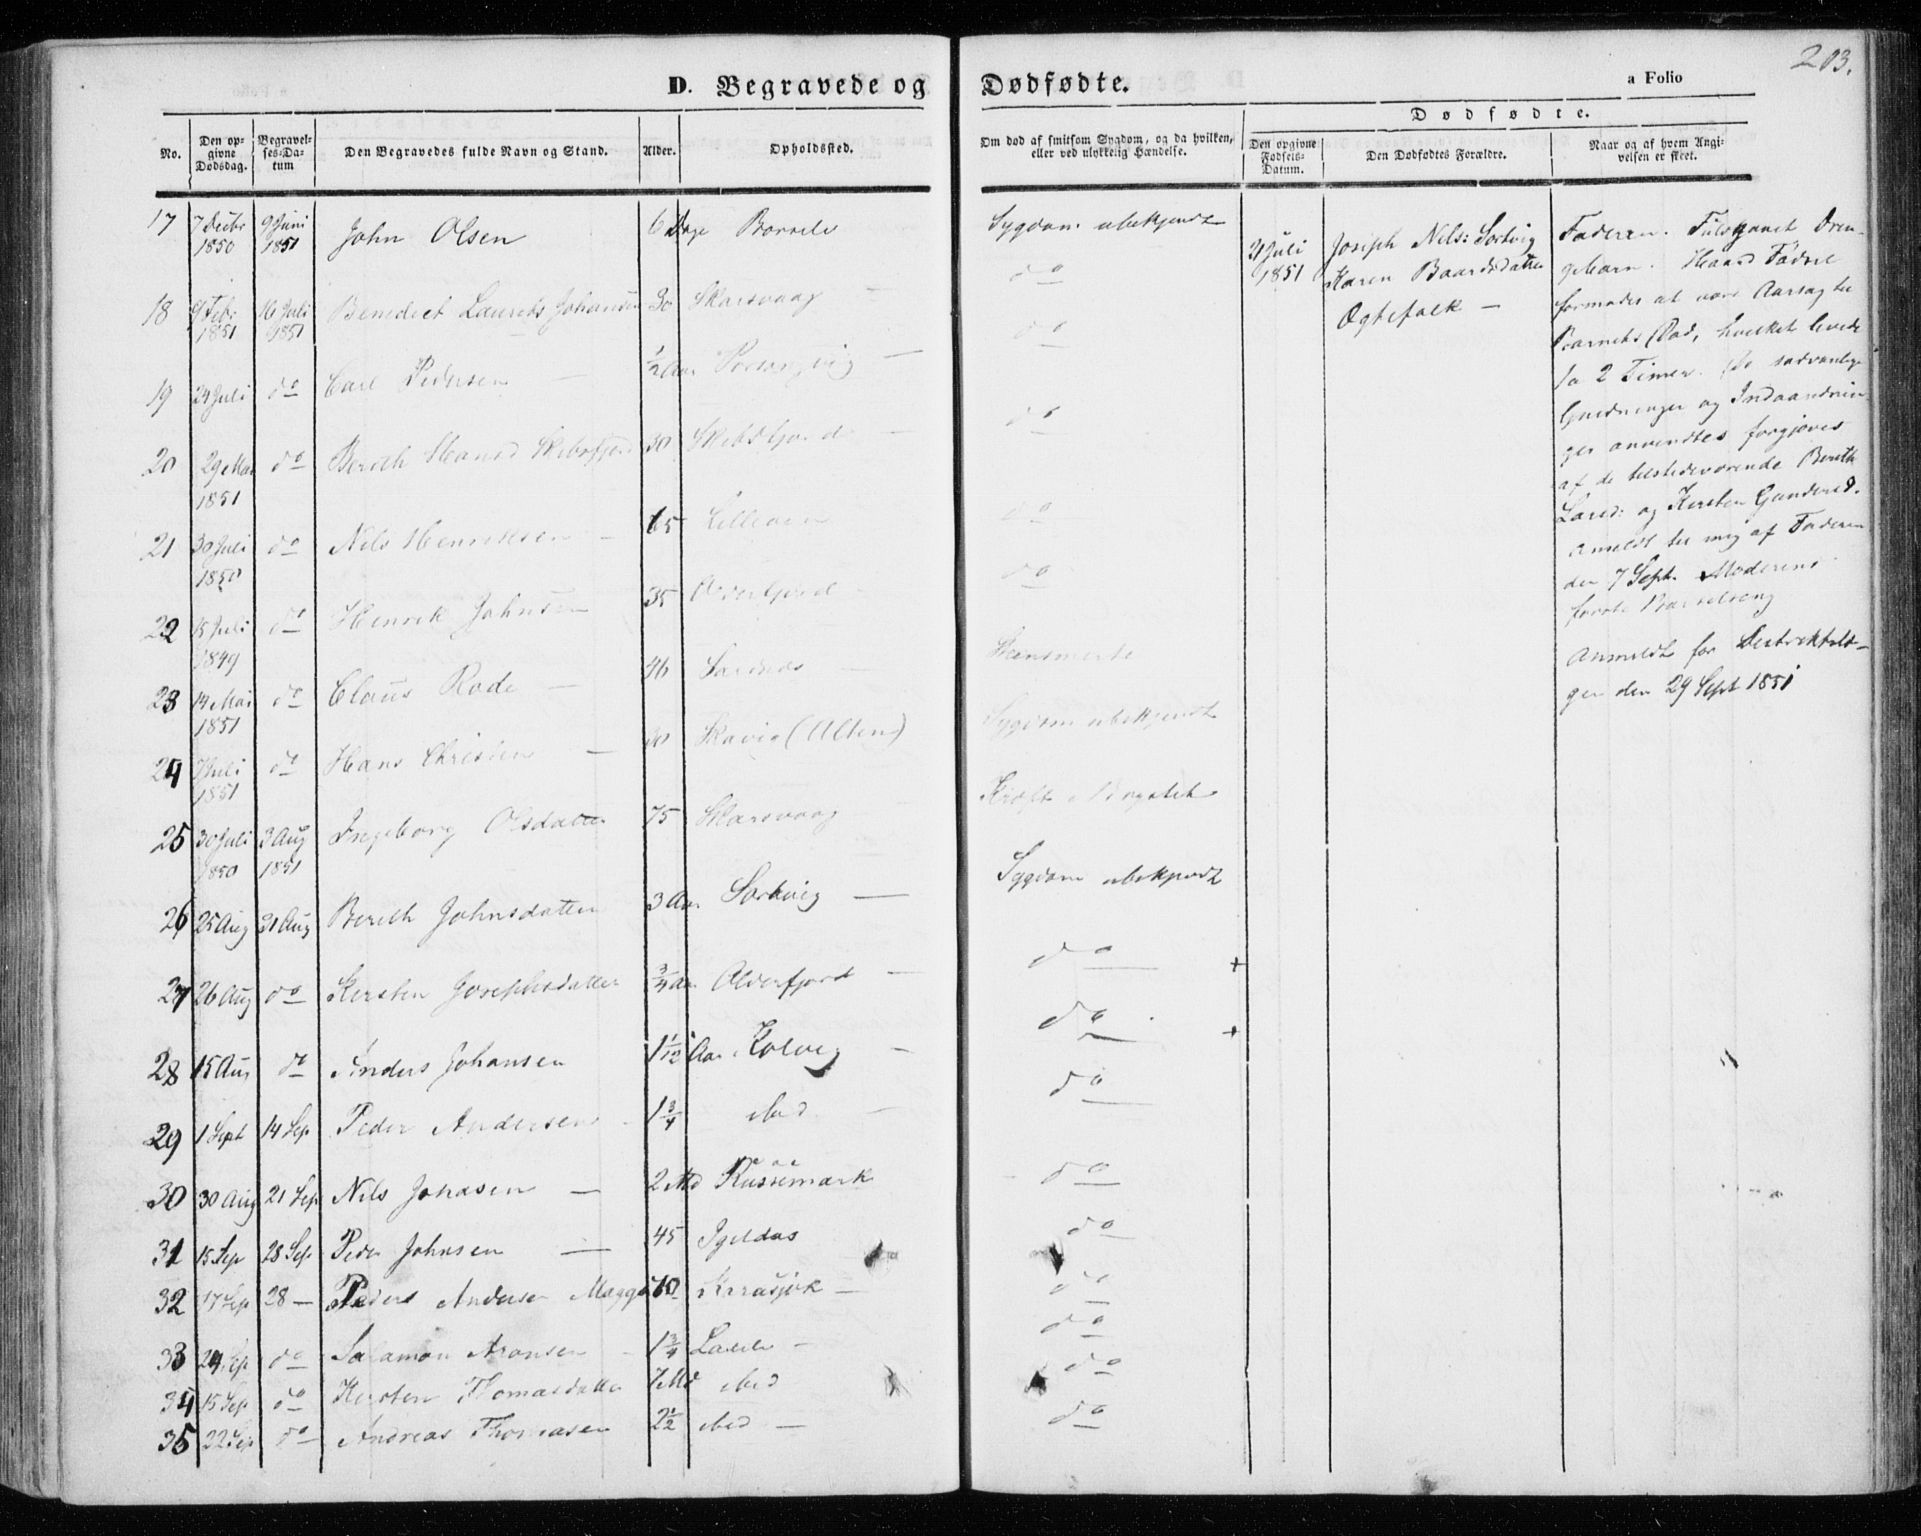 203.
D. Begravede og Dødfødte.
a Folio
No.
Den opgivne Dødsdag.
Begravelses-Datum
Den Begravedes fulde Navn og Stand.
Alder.
Opholdssted.
Om død af smitsom Sygdom, og da hvilken, eller ved ulykkelig Hændelse.
Dødfødte.
Den opgivne Fødsels-Datum.
Den Dødfødtes Forældre.
Naar og af hvem Angivelsen er skeet.
17 7 Decbr 1850 9 Juni 1851 John Olsen 6 Dage Sygdom ubekjendt
18 Febr 1851 16 Juli 1851 Benedict Laurits Johansen 30 Skarsvaag — do
19 24 Juli do Carl Pedersen — 1/2 Aar — do
20 29 Mai 1851 do Berith Hansd Skibsfjord 30 Skibsfjord — do
21 30 Juli 1850 do Nils Henriksen — 65 do
22 15 Juli 1849 do Henrik Johnsen 35 Olderfjord do
23 14 Mai 1851 do Claus Rode — 46 —
24 7 Juli 1851 do Hans Christen — (Alten) Sygdom ubekjendt
25 30 Juli 1850 3 Aug 1851 Ingeborg Olsdatter 75 Skarsvaag Kræft
26 25 Aug 31 Aug Berith Johnsdatter 3 Aar Sortvig — Sygdom ubekjendt
27 26 Aug do Kersten Josephsdatter 3/4 Aar Olderfjord — do +
28 15 Aug do Anders Johansen 1 1/12 Aar Kolvig — do +
29 1 Sept 14 Sep Peder Andersen 1 3/4 ibid — do
30 30 Aug 21 Sep Nils Johasen — 2 Md Russemark do
31 15 Sep 28 Sep Peder Johnsen — 45 Igeldas do
32 17 Sep 28 — Peders Andersen Magga 70 Karasjok — do
33 24 Sep do Salamon Aronsen 1 3/4 — do
34 15 Sep do Kersten Thomasdatter 7 Md ibid do
35 22 Sep do Andreas Thomasen 2 1/2 ibid — do
21 Juli 1851
Joseph Nils: Sortvig
Karen Baardsdatter
Ægtefolk —
Faderen. Fuldbaaret Dren-
gebarn. Haard Fødsel
formodes at være Aarsag til
Barnets Død, hvilket levede
2 Timer. De sædvanlige
Gnidninger og Indaandnin
ger anvendtes forgjæves
af de tilstedeværende Berith
Larsd: og Kersten Gundersd.
Anmeldt til mig af Faderen
den 7 Sept. Moderens
første Barselseng
Anmeldt for Distriktslæ-
gen den 29 Sept 1851